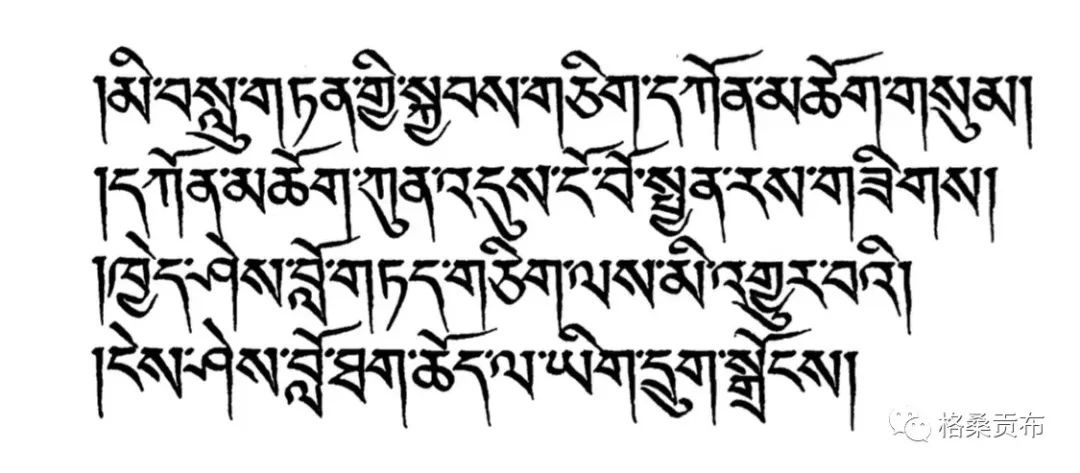 །མི་བསླུ་གཏན་གྱི་སྐྱབས་གཅིག་དཀོན་མཆོག་གསུམ།
།དཀོན་མཆོག་ཀུན་འདུས་ངོ་བོ་སྤྱན་རས་གཟིགས།
།ཁྱེད་ཤེས་བློ་གཏད་གཅིག་ལས་མི་འགྱུར་བའི།
།ངེས་ཤེས་བློ་ཐག་ཆོད་ལ་ཡིག་དྲུག་སྒྲོངས།
格桑贡布